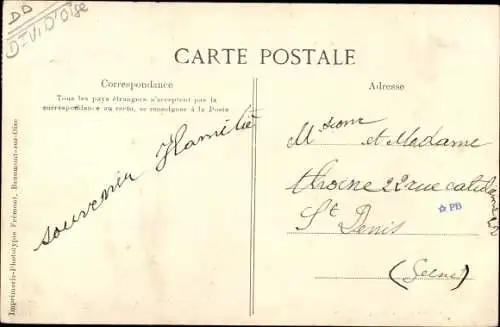 DD
D-Vl D'Oise
CARTE POSTALE
Correspondance
Tous les pays étrangers n'acceptent pas la
correspondance au recto, se renseigner à la Poste
souvenir
Adresse
et Madame
22 rue
St Denis
(Seine)
☆ PB
Imprimerie-Phototypie Frémont, Beaumont-sur-Oise